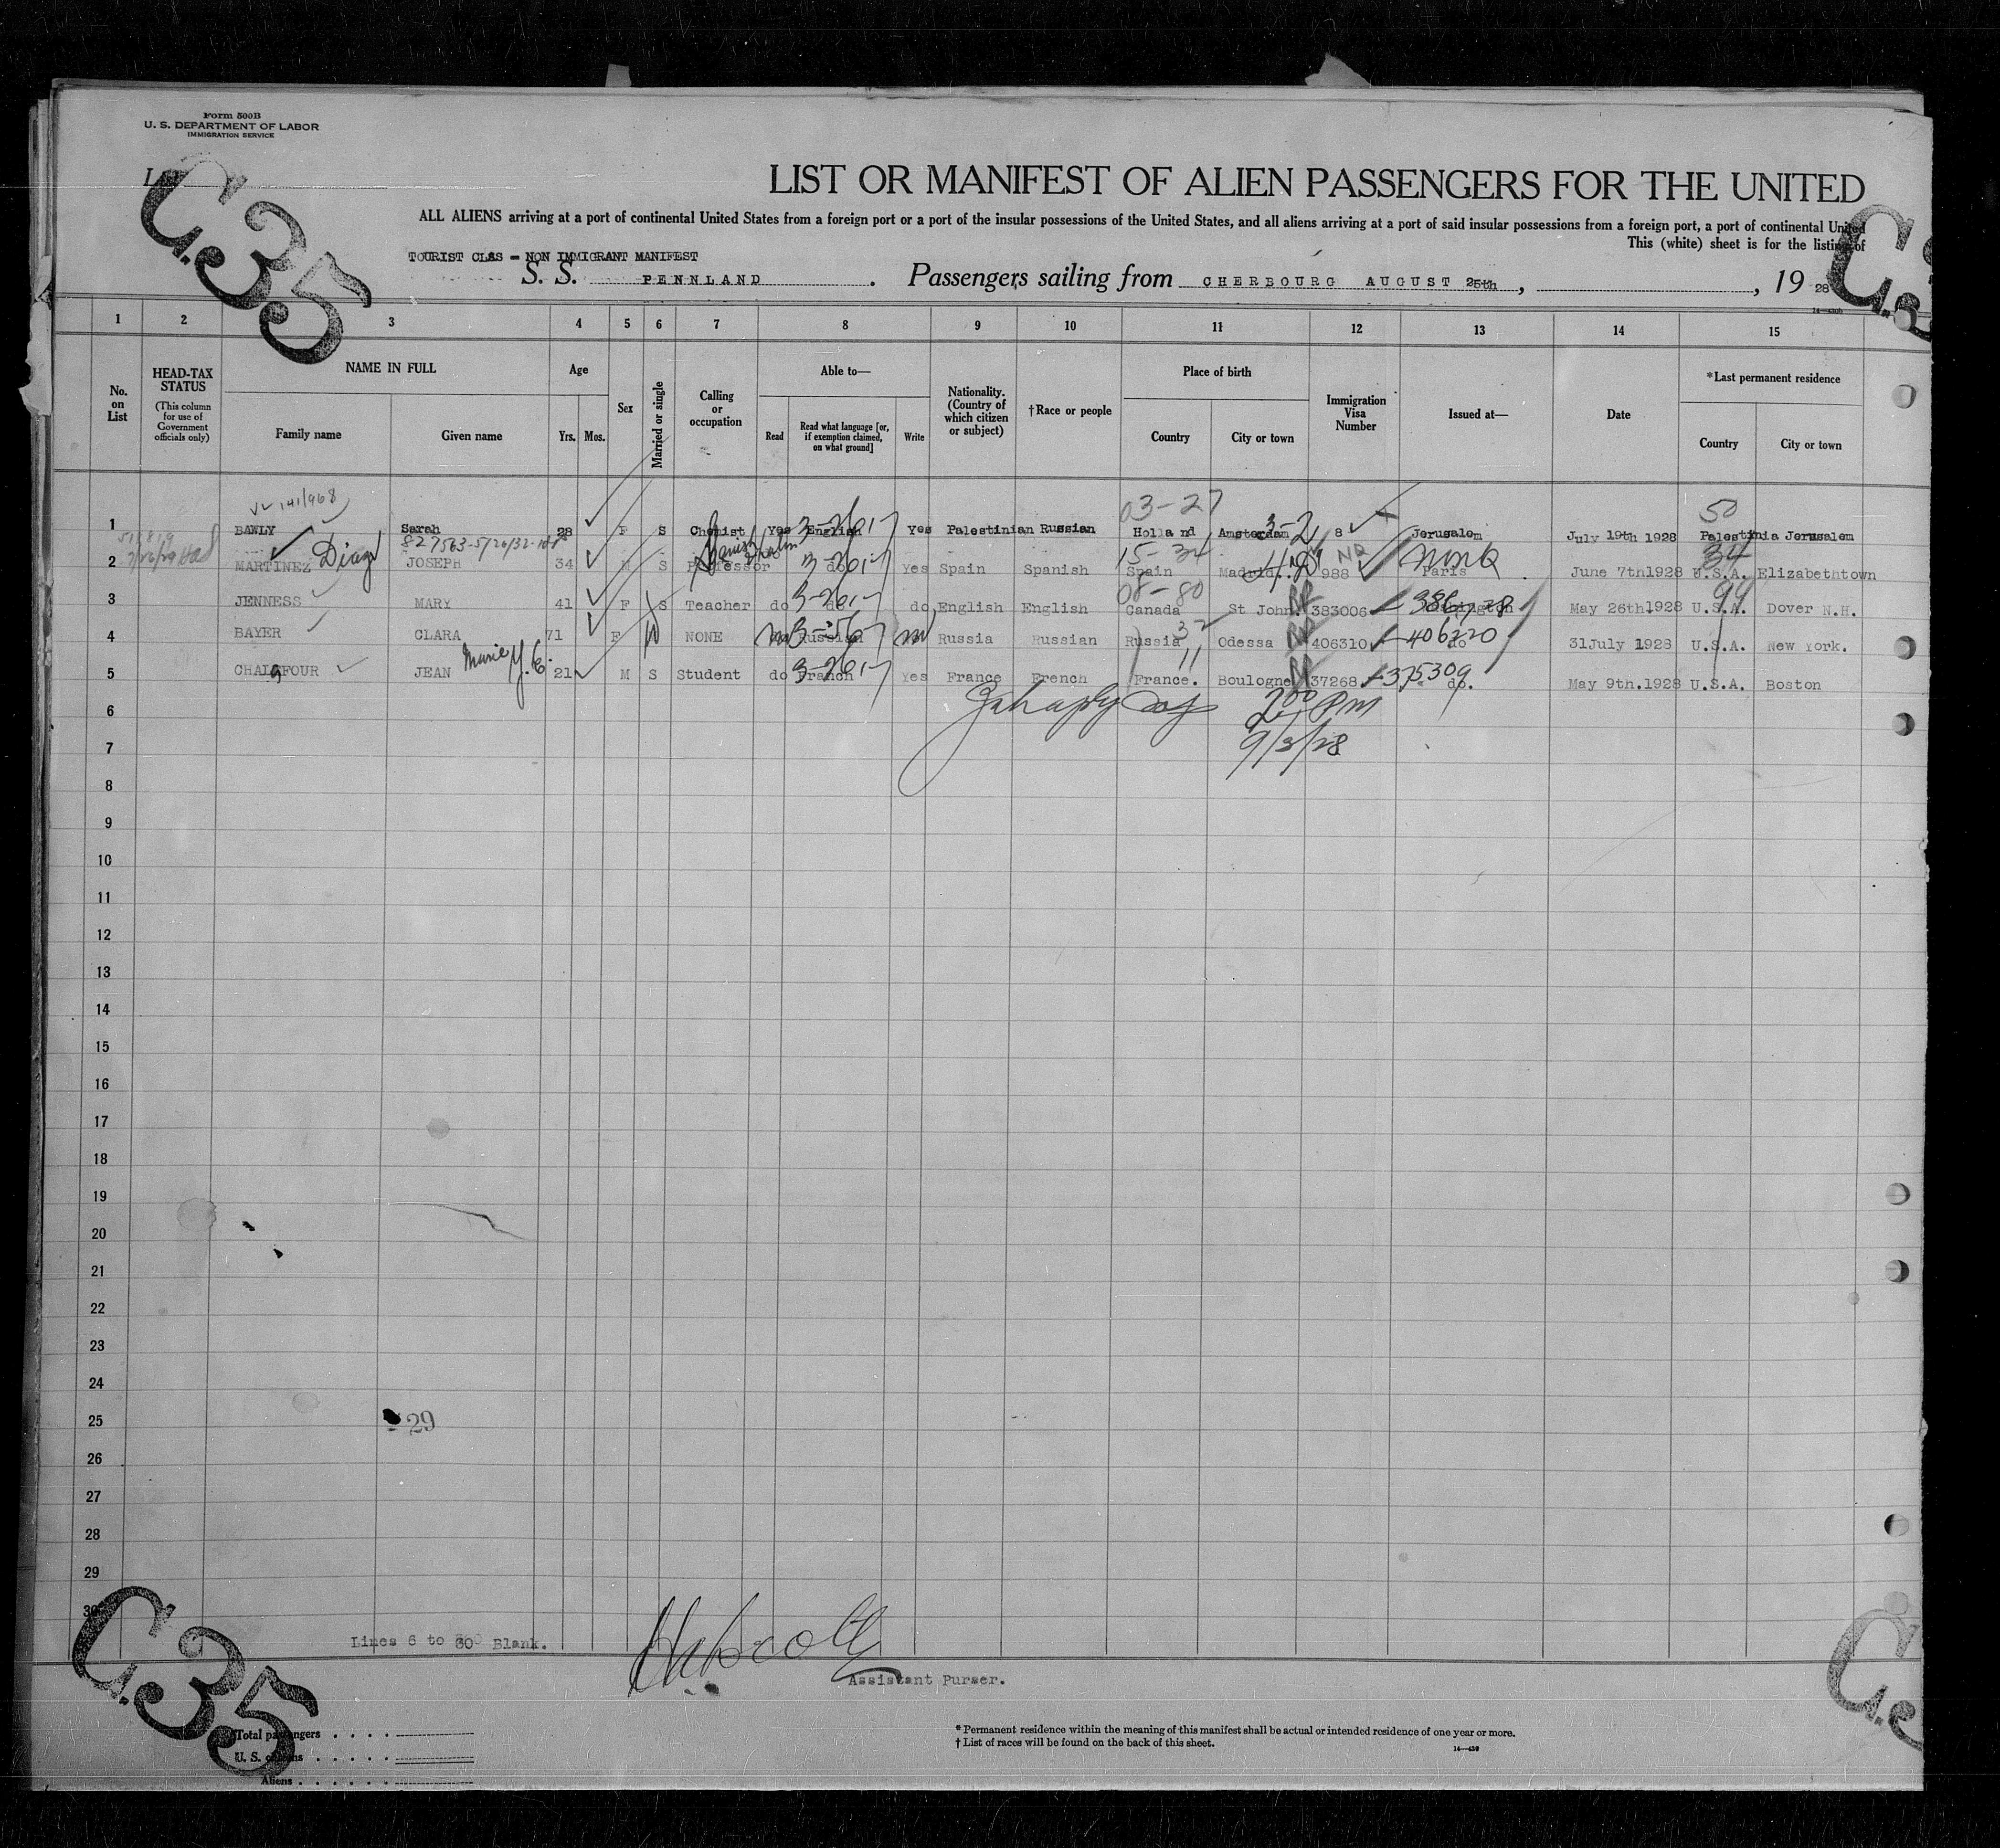 Form 500B
U. S. DEPARTMENT OF LABOR
IMMIGRATION SERVICE
C.35
LIST OR MANIFEST OF ALIEN PASSENGERS FOR THE UNITED
ALL ALIENS arriving at a port of continental United States from a foreign port or a port of the insular possessions of the United States, and all aliens arriving at a port of said insular possessions from a foreign port, a port of continental United
This (white) sheet is for the listing of
TOURIST CLAS - NON IMMIGRANT MANIFEST
S. S. PENNLAND. Passengers sailing from CHERBOURG AUGUST 25th, , 19 28
1 2 3 4 5 6 7 8 9 10 11 12 13 14 15
No. on List
HEAD-TAX STATUS
(This column for use of Government officials only)
NAME IN FULL
Family name Given name
Age
Yrs. Mos.
Sex
Married or single
Calling or occupation
Able to—
Read Read what language [or, if exemption claimed, on what ground] Write
Nationality. (Country of which citizen or subject)
†Race or people
Place of birth
Country City or town
Immigration Visa Number
Issued at—
Date
*Last permanent residence
Country City or town
141/968 03-27 50
1 BAWLY Sarah 28 F S Chemist Yes English Yes Palestinian Russian Holland Amsterdam 8 Jerusalem July 19th 1928 Palestinia Jerusalem
827563-5/26/32 15-34 34
2 MARTINEZ Diaz JOSEPH 34 M S Professor do Yes Spain Spanish Spain Madrid. 988 Paris June 7th1928 U.S.A. Elizabethtown
08-80 99
3 JENNESS MARY 41 F S Teacher do do do English English Canada St John. RP 383006 May 26th1928 U.S.A. Dover N.H.
4 BAYER CLARA 71 F W NONE no Russian no Russia Russian Russia Odessa RP 406310 do 31July 1928 U.S.A. New York.
5 CHALUFOUR JEAN Marie 21 M S Student do French Yes France French France. Boulogne RP 37268 375309 do. May 9th.1928 U.S.A. Boston
6 200 Pm
7 9/3/28
8
9
10
11
12
13
14
15
16
17
18
19
20
21
22
23
24
25 29
26
27
28
29
30
Lines 6 to 30 Blank.
Assistant Purser.
C.35
Total passengers
U. S. citizens
Aliens
* Permanent residence within the meaning of this manifest shall be actual or intended residence of one year or more.
† List of races will be found on the back of this sheet.
14—430